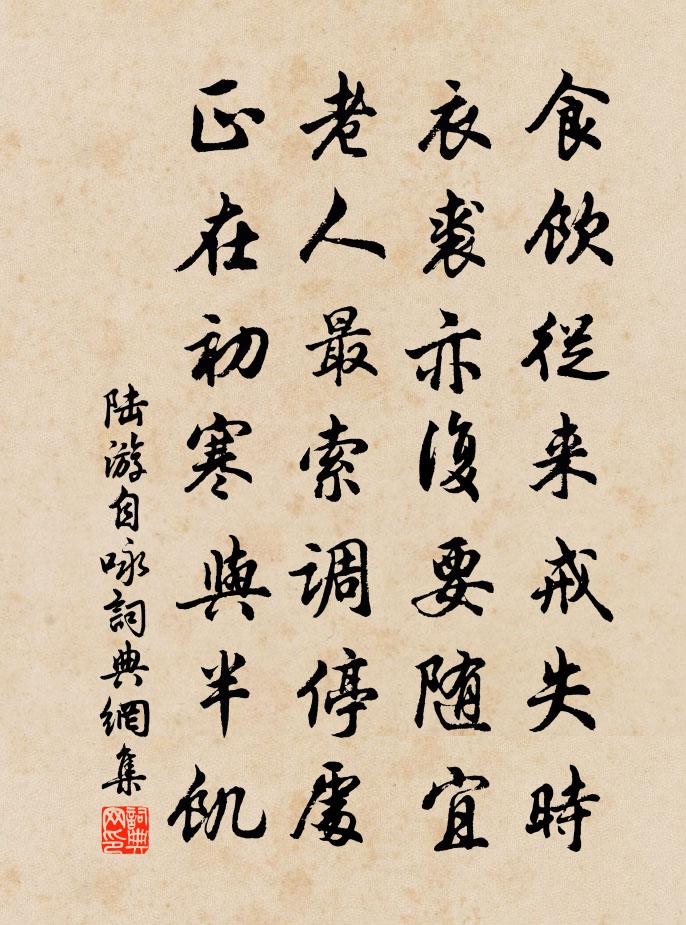 食飲從来戒失時
衣裘亦復要随宜
老人最索调停處
正在初寒與半飢
陆游自咏詞典網集
詞典網印